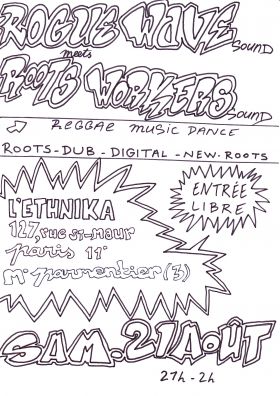 ROGUE WAVE SOUND
meets
ROOTS WORKERS SOUND
REGGAE MUSIC DANCE
ROOTS-DUB-DIGITAL-NEW-ROOTS
ENTRÉE
LIBRE
L'ETHNIKA
127, rue ST-Maur
Paris 11e
M° Parmentier (3)
SAM. 21 AOÛT
21h-2h